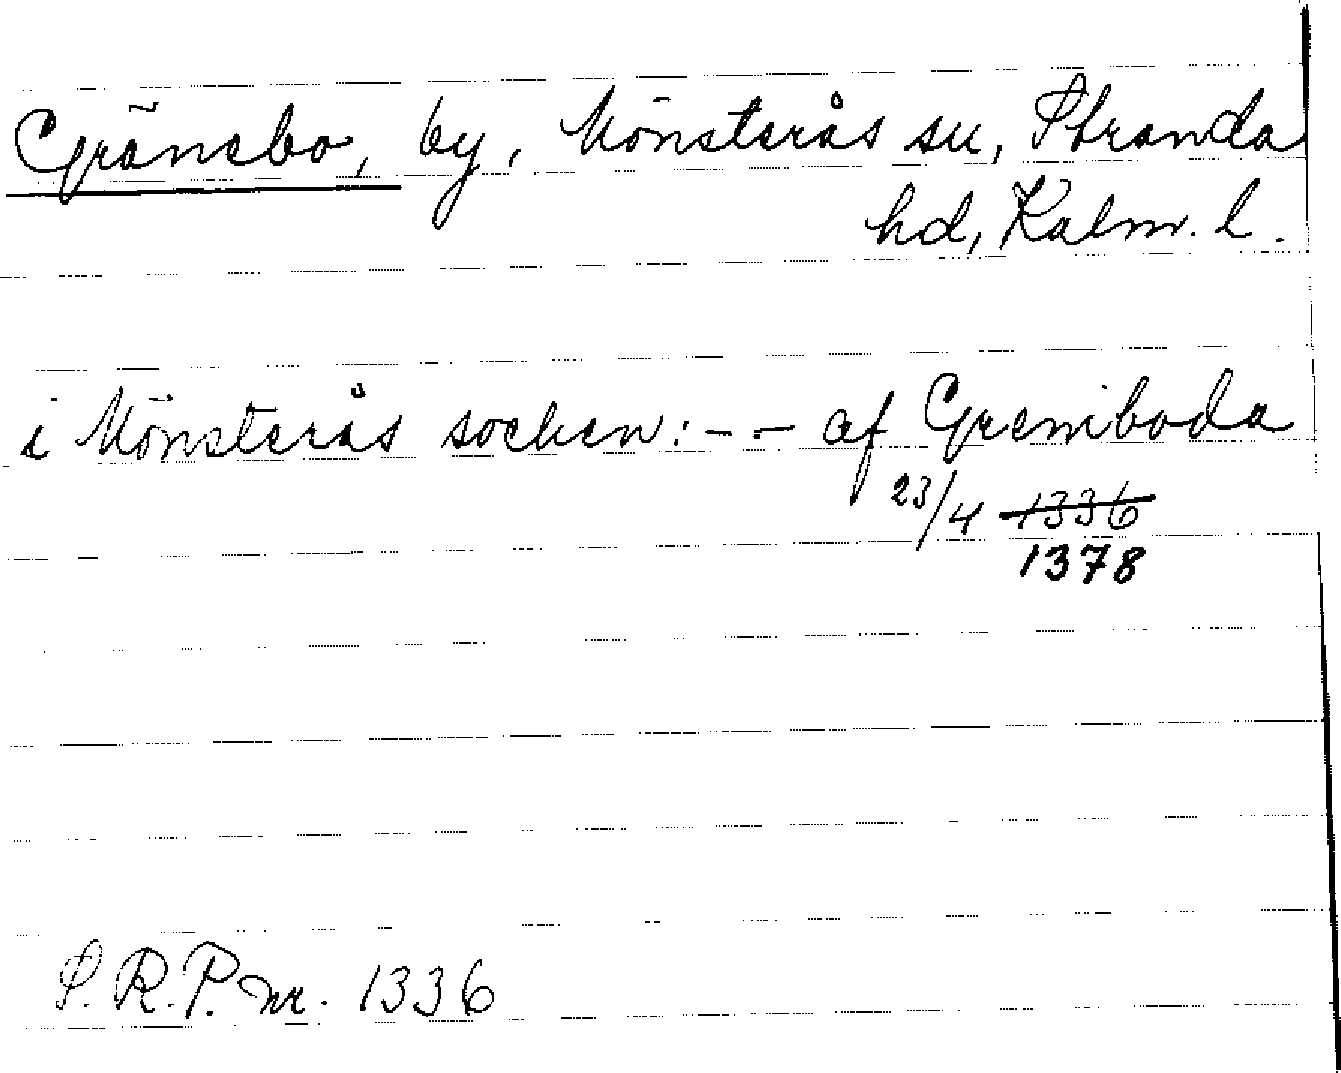 Gränsbo, by, Mönsterås sn, Stranda
hd, Kalm. l.
i Mönsterås socken: - . - af Gremiboda
23/4 1336
1378
S.R.P. nr. 1336